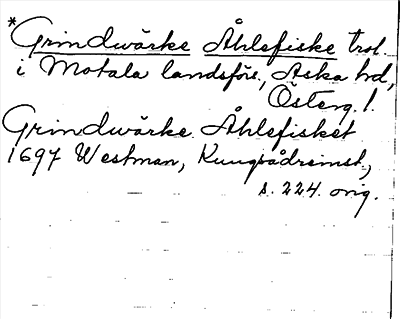 *Grindwärke Åhlefiske trol.
i Motala landsförs., Aska hd,
Österg. l.
Grindwärke Åhlefisket
1697 Westman, Kungsådreinst.,
s. 224. orig.